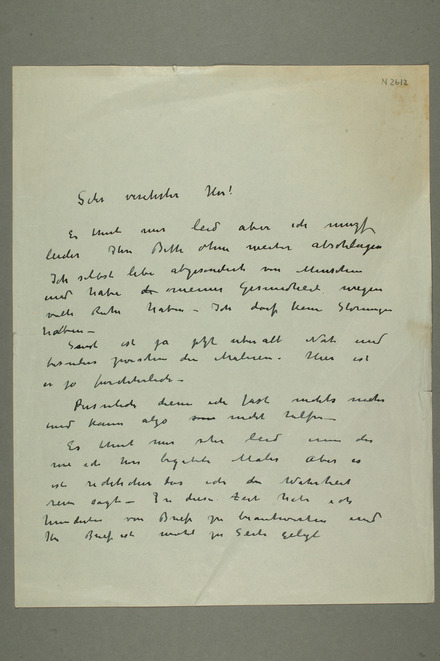 N 2612
Sehr verehrter Herr!
Es thut mir leid aber ich muss
leider Ihre Bitte ohne weiter abschlagen
Ich selbst lebe abgesondert von Menschen
und habe meiner Gesundheit wegen
viele Ruhe haben – Ich darf keine Störungen
haben –
Sonst ist ja jetzt überall Not und
besonders zwischen den Malern. Hier ist
es ja fürchterlich –
Persönlich diene ich fast nichts mehr
und kann also nicht helfen –
Es thut mir sehr leid um das
wie ich Ihre begabte Maler Aber es
ist redlicher das ich die Wahrheit
sage – In dieser Zeit hatte ich
hunderte von Briefe zu beantworten und
Ihr Brief ist wohl zu Seite gelegt